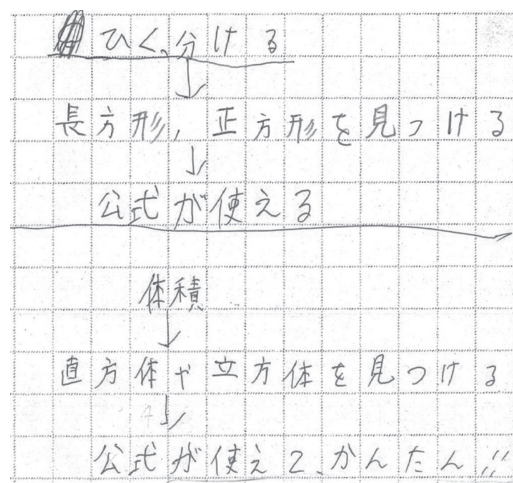 ひく、分ける
↓
長方形,正方形を見つける
↓
公式が使える
体積
↓
直方体や立方体を見つける
↓
公式が使えて、かんたん!!!